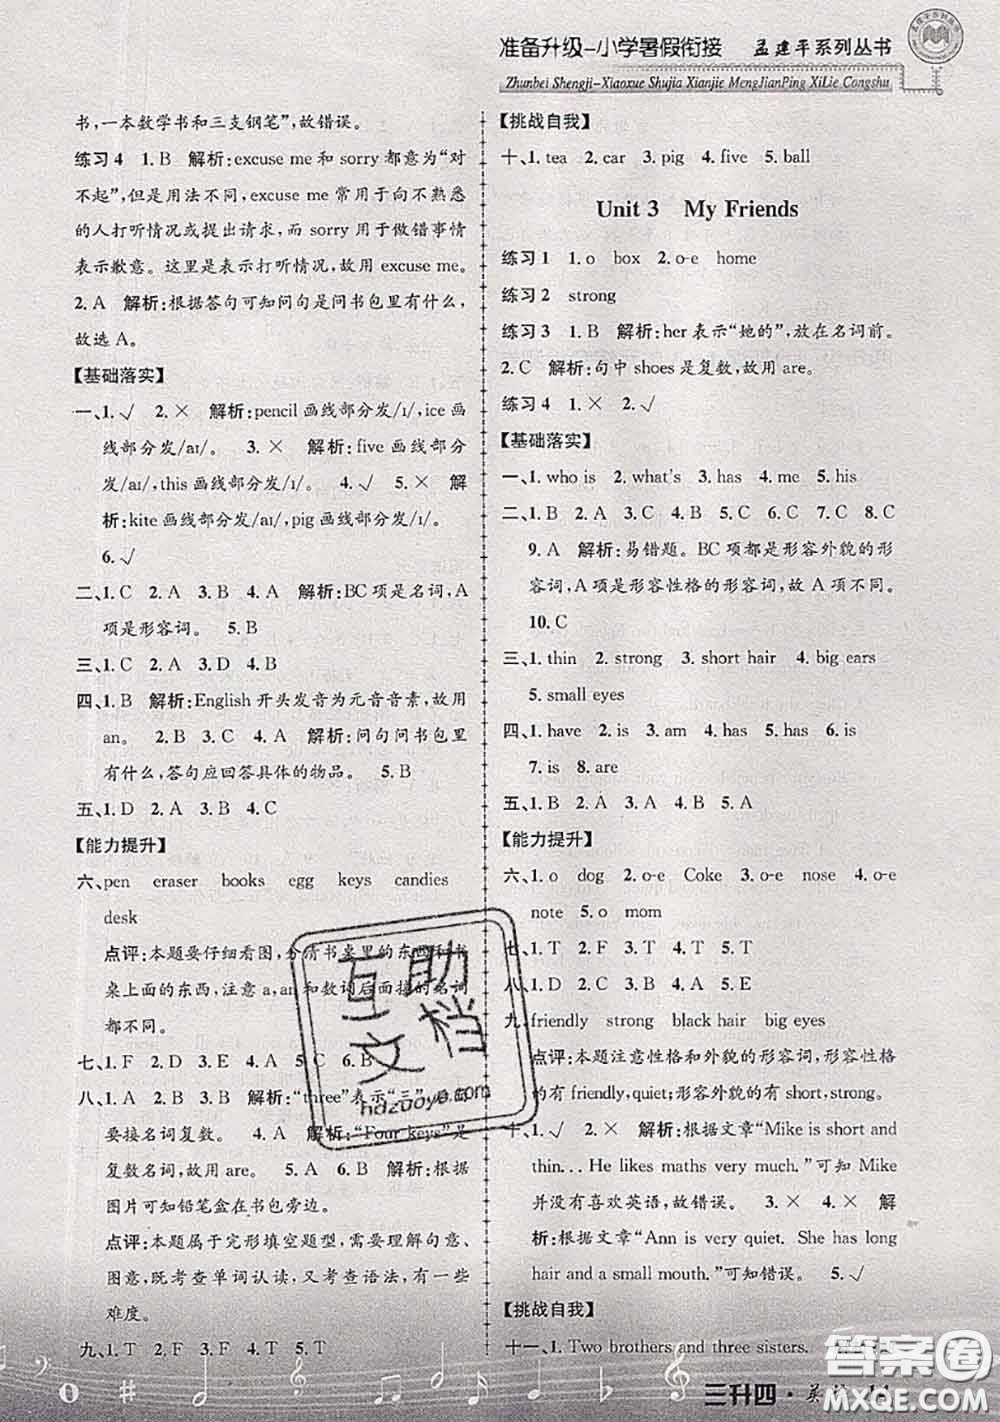 准备升级-小学暑假衔接 孟建平系列丛书
Zhunbei Shengji-Xiaoxue Shujia Xianjie MengJianPing XiLie Congshu
书,一本数学书和三支钢笔”,故错误。
练习4 1.B 解析:excuse me 和 sorry 都意为“对
不起”,但是用法不同,excuse me 常用于向不熟悉
的人打听情况或提出请求,而 sorry 用于做错事情
表示歉意。这里是表示打听情况,故用 excuse me。
2.A 解析:根据答句可知问句是问书包里有什么,
故选 A。
【基础落实】
一、1.√ 2.× 解析:pencil 画线部分发/ɪ/,ice 画
线部分发/aɪ/。 3.× 解析:five 画线部分
发/aɪ/,this 画线部分发/ɪ/。 4.√ 5.× 解
析:kite 画线部分发/aɪ/,pig 画线部分发/ɪ/。
6.√
二、1.C 2.A 3.A 4.A 解析:BC 项是名词,A
项是形容词。 5.B
三、1.C 2.A 3.D 4.B
四、1.B 解析:English 开头发音为元音音素,故用
an。 2.B 3.C 4.A 解析:问句问书包里
有什么,答句应回答具体的物品。 5.B
五、1.D 2.A 3.B 4.C
【能力提升】
六、pen eraser books egg keys candies
desk
点评:本题要仔细看图,分清书桌里的东西和书
桌上面的东西,注意 a,an 和数词后面接的名词
都不同。
七、1.F 2.D 3.E 4.A 5.C 6.B
八、1.B 2.A 3.B 解析:“three”表示“三”,后面
要接名词复数。 4.A 解析:“Four keys”是
复数名词,故用 are。 5.A 6.B 解析:根据
图片可知铅笔盒在书包旁边。
点评:本题属于完形填空题型,需要理解句意、
图意,既考查单词认读,又考查语法,有一些
难度。
九、1.T 2.F 3.F 4.T 5.T
【挑战自我】
十、1. tea 2. car 3. pig 4. five 5. ball
Unit 3 My Friends
练习1 1. o box 2. o-e home
练习2 strong
练习3 1. B 解析:her 表示“她的”,放在名词前。
2. C 解析:句中 shoes 是复数,故用 are。
练习4 1.× 2.√
【基础落实】
一、1. who is 2. what's 3. has 4. me 5. his
二、1. B 2. A 3. C 4. B 5. C 6. A 7. C 8. C
9. A 解析:易错题。BC 项都是形容外貌的形
容词,A 项是形容性格的形容词,故 A 项不同。
10. C
三、1. thin 2. strong 3. short hair 4. big ears
5. small eyes
四、1. have 2. is 3. am 4. has 5. has 6. is
7. is 8. are
五、1. B 2. A 3. A 4. B 5. A
【能力提升】
六、1. o dog 2. o-e Coke 3. o-e nose 4. o-e
note 5. o mom
七、1. T 2. F 3. T 4. T 5. T
八、1. D 2. C 3. B 4. A 5. E
九、friendly strong black hair big eyes
点评:本题注意性格和外貌的形容词,形容性格
的有 friendly,quiet;形容外貌的有 short,strong,
thin。
十、1.√ 2.× 解析:根据文章“Mike is short and
thin... He likes maths very much.”可知 Mike
并没有喜欢英语,故错误。 3.× 4.× 解
析:根据文章“Ann is very quiet. She has long
hair and a small mouth.”可知错误。 5.√
【挑战自我】
十一、1. Two brothers and three sisters.
三升四·英语
互助文档
hdzuoye.com
答案圈